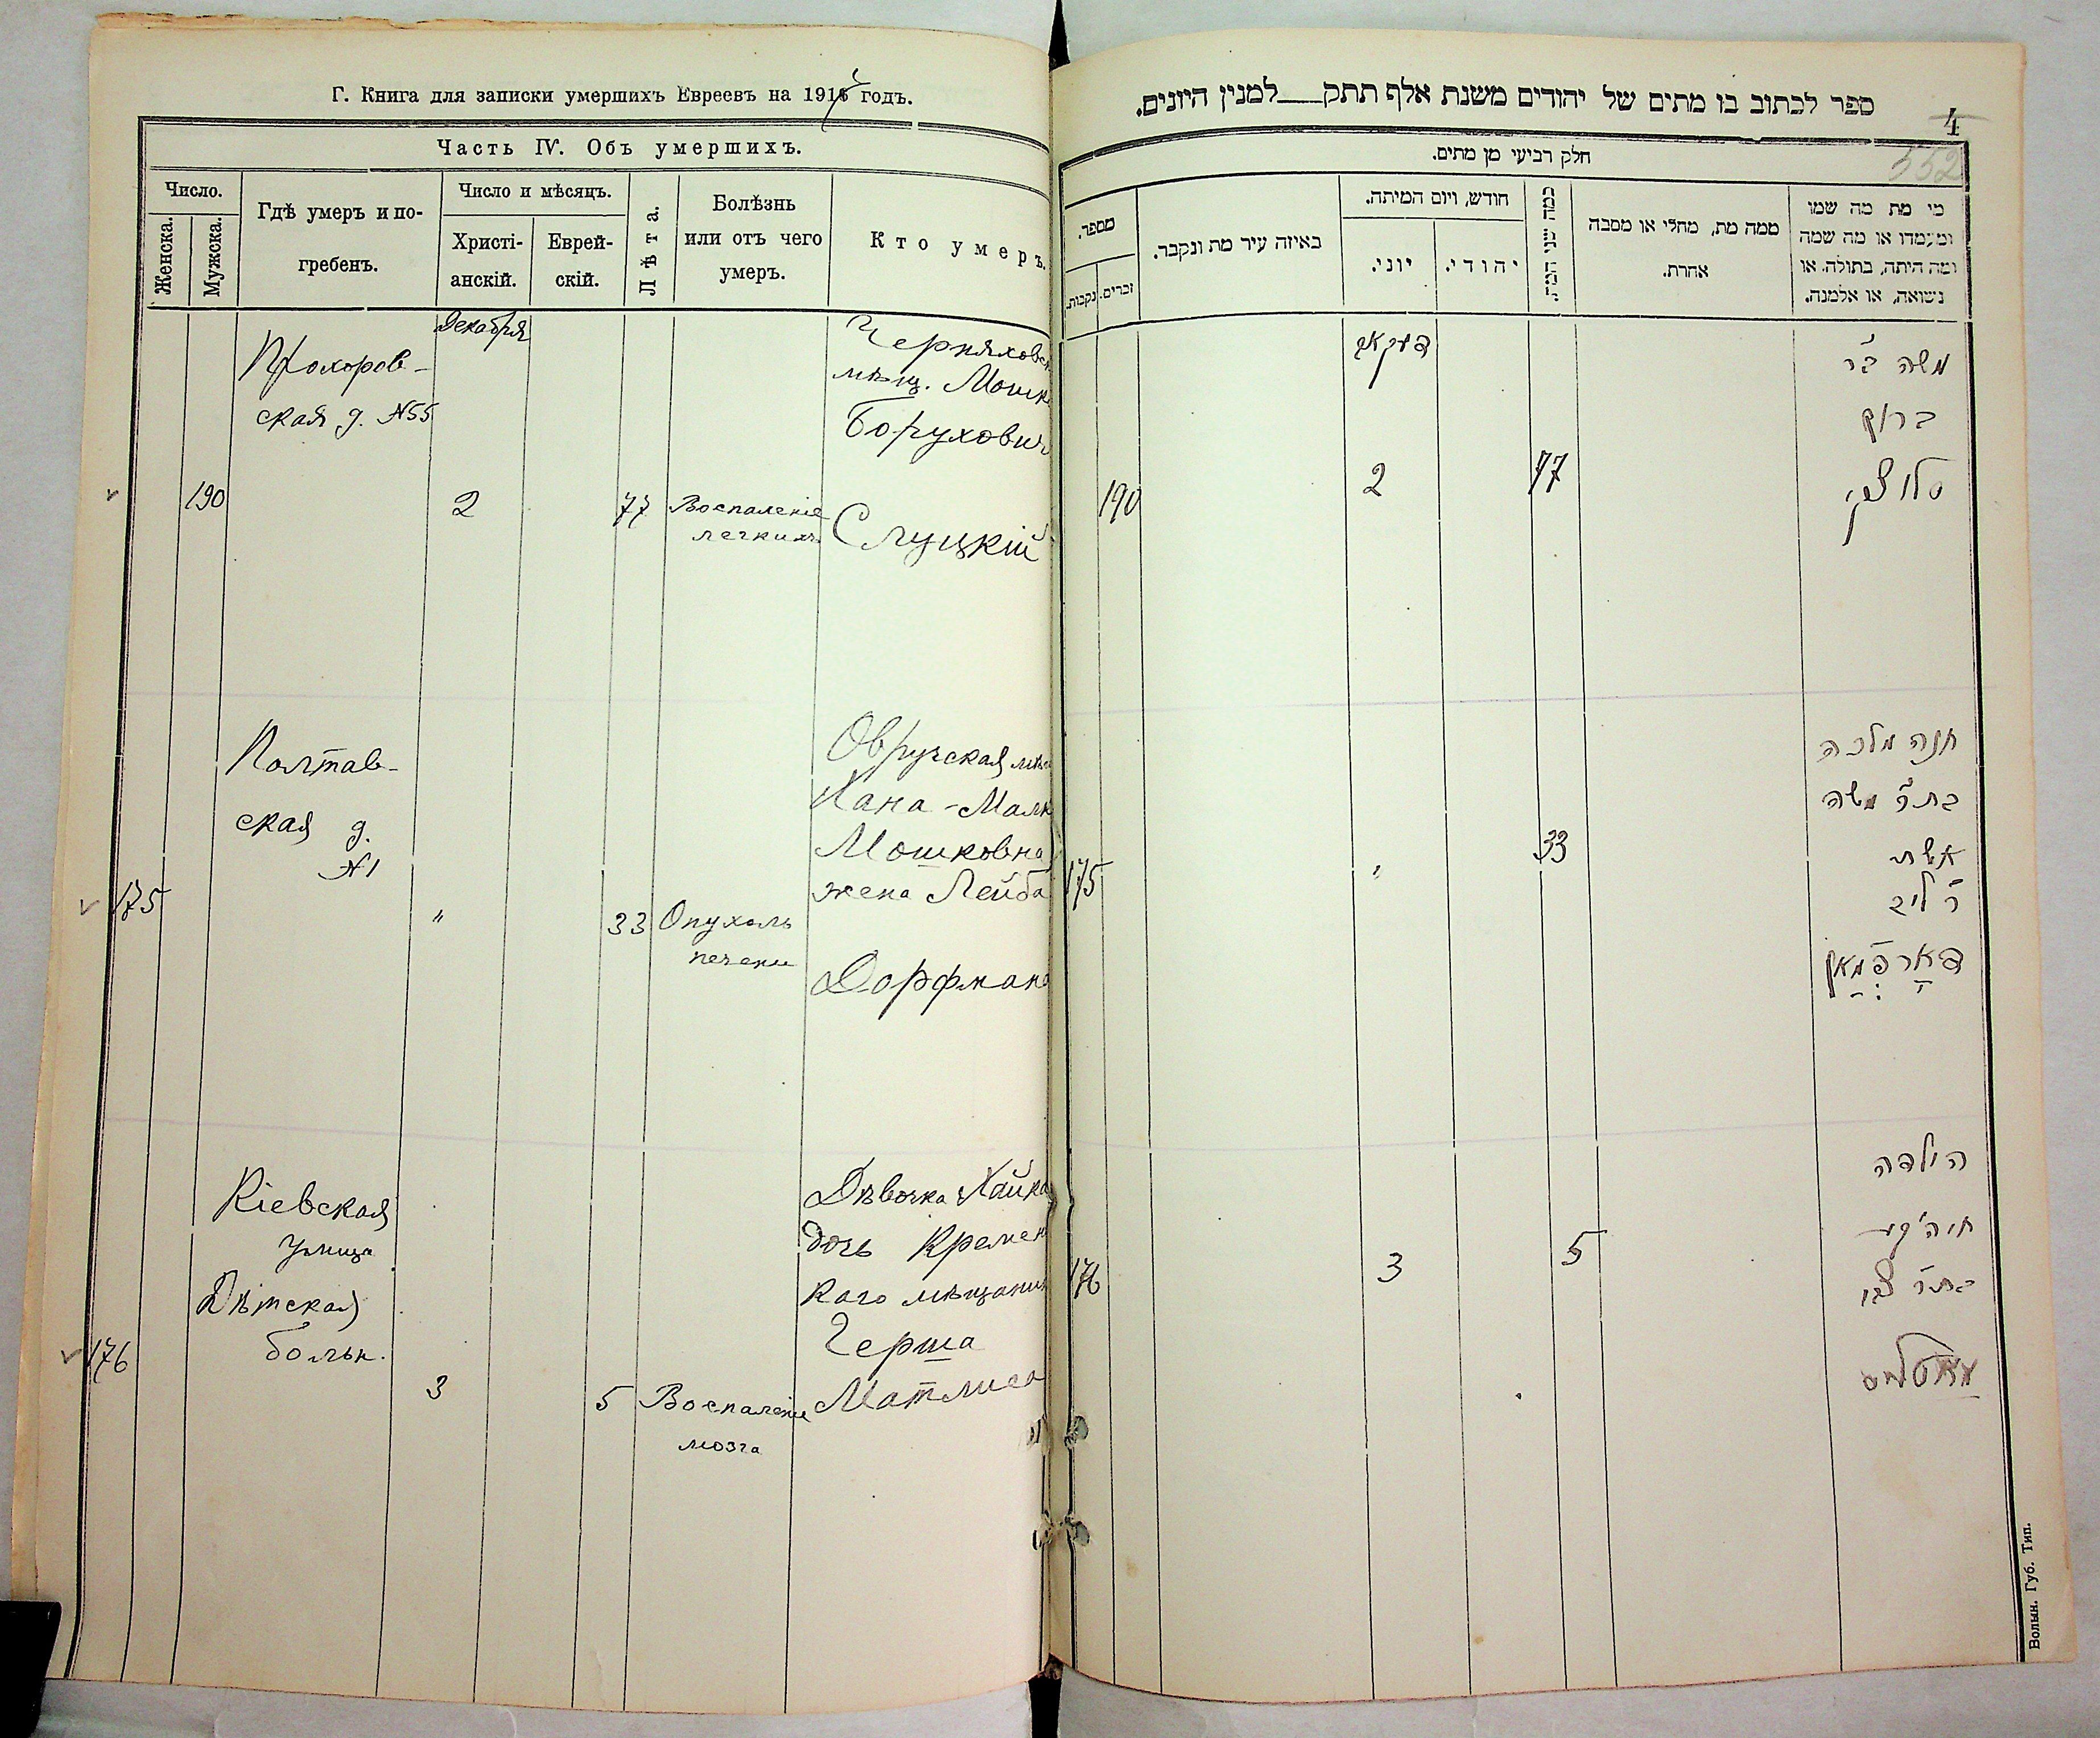 Г. Книга для записки умершихъ Евреевъ на 1915 годъ.
Часть IV. Объ умершихъ.
Число.
Женска.
Мужска.
Гдѣ умеръ и по-
гребенъ.
Число и мѣсяцъ.
Христі-
анскій.
Еврей-
скій.
Лѣта.
Болѣзнь
или отъ чего
умеръ.
Кто умеръ.
Декабря
Прохоров-
ская д. №55
190
2
77
Воспаленіе
легкихъ
Черняховск
мѣщ. Мошк
Борухович
Слуцкій
Полтав-
ская д.
№1
175
"
33
Опухоль
печени
Овручская мѣщ
Хана-Малк
Мошковна
жена Лейба
Дорфмана
Кіевская
улица
Дѣтская
больн.
176
3
5
Воспаленіе
мозга
Дѣвочка Хайка
дочь Кремен
каго мѣщанин
Герша
Матлиса
ספר לכתוב בו מתים של יהודים משנת אלף תתק___למנין היונים.
4
552
חלק רביעי מן מתים.
מספר.
נקבות.
זכרים.
באיזה עיר מת ונקבר.
חודש, ויום המיתה.
יוני.
יהודי.
כמה שני המת.
ממה מת, מחלי או מסבה
אחרת.
מי מת מה שמו
ומעמדו או מה שמה
ומה היתה, בתולה, או
נשואה, או אלמנה.
דעקאב
190
2
77
משה ב"ר
ברוך
סלוצקי
175
"
33
חנה מלכה
בת"ר משה
אשת
ר' ליב
דארפמאן
176
3
5
הילדה
חיה'קע
בת"ר צבי
מאטליס
Волын. Губ. Тип.